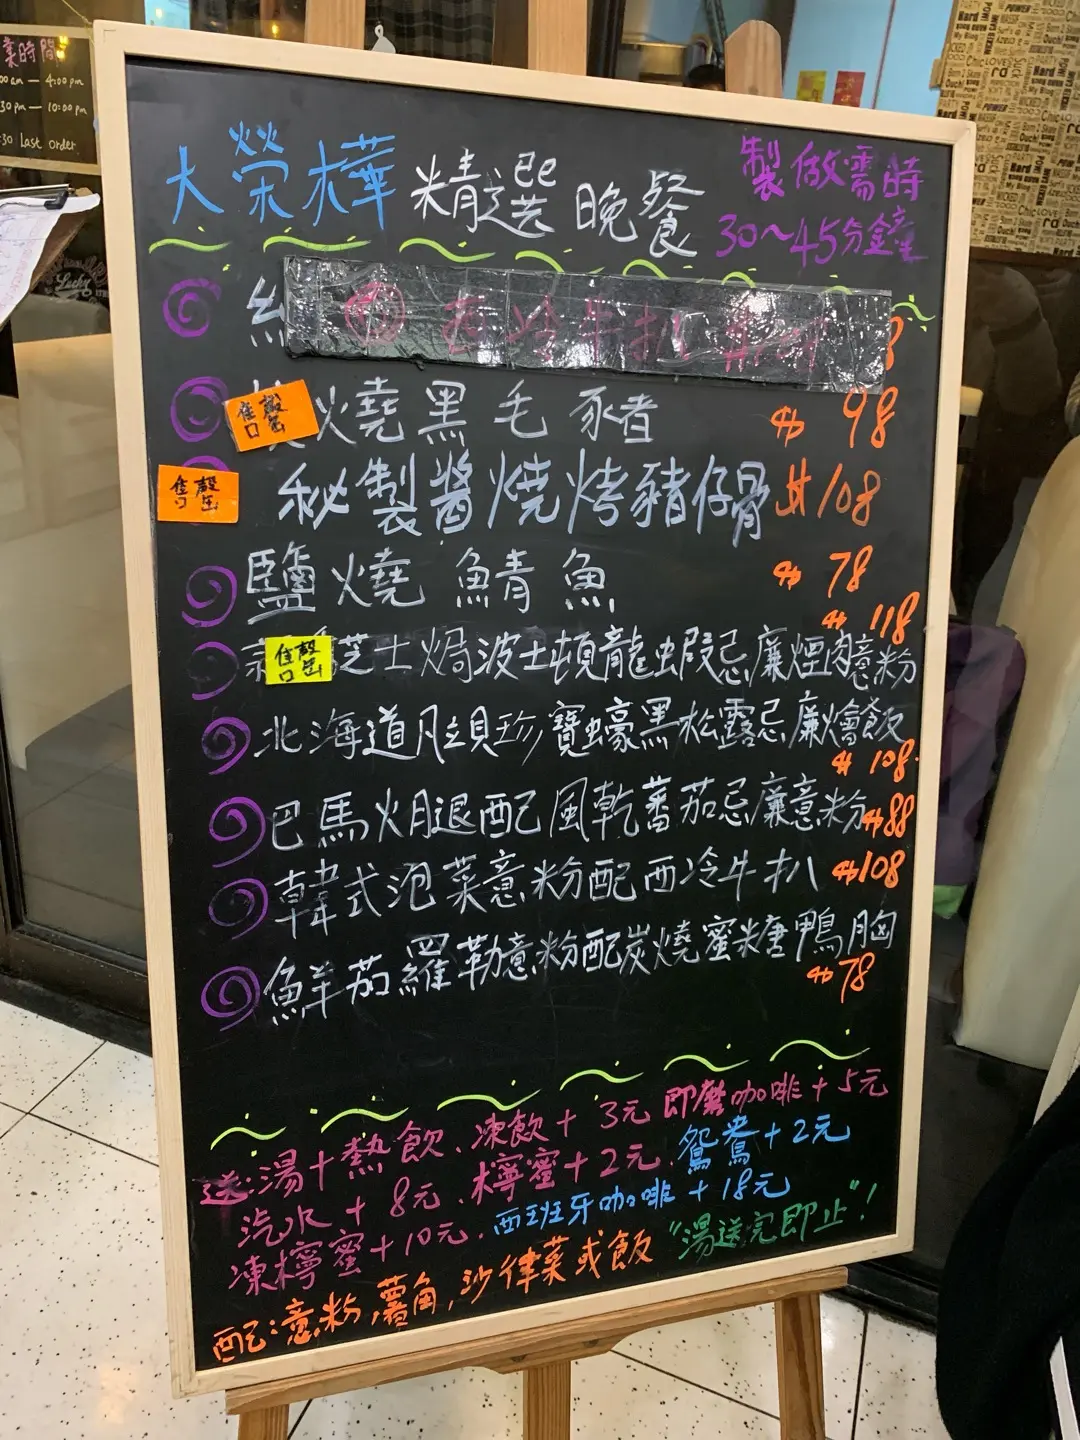 業時間
00am — 4:00pm
30pm — 10:00pm
:30 Last order
大榮樺 精選晚餐
製做需時
30~45分鐘
西冷牛扒
售罄
燒黑毛豬 $98
售罄
秘製醬燒烤豬仔骨 $108
鹽燒鯖魚 $78
售罄
芝士焗波士頓龍蝦忌廉煙肉意粉 $118
北海道帶珍寶蠔黑松露忌廉燴飯 $108
巴馬火腿配風乾蕃茄忌廉意粉 $88
韓式泡菜意粉配西冷牛扒 $108
鮮茄羅勒意粉配炭燒蜜糖鴨胸 $78
送:湯+熱飲、凍飲+3元 即磨咖啡+5元
汽水+8元、檸蜜+2元、鴛鴦+2元
凍檸蜜+10元、西班牙咖啡+18元
配:意粉,薯角,沙律菜或飯 "湯送完即止"!